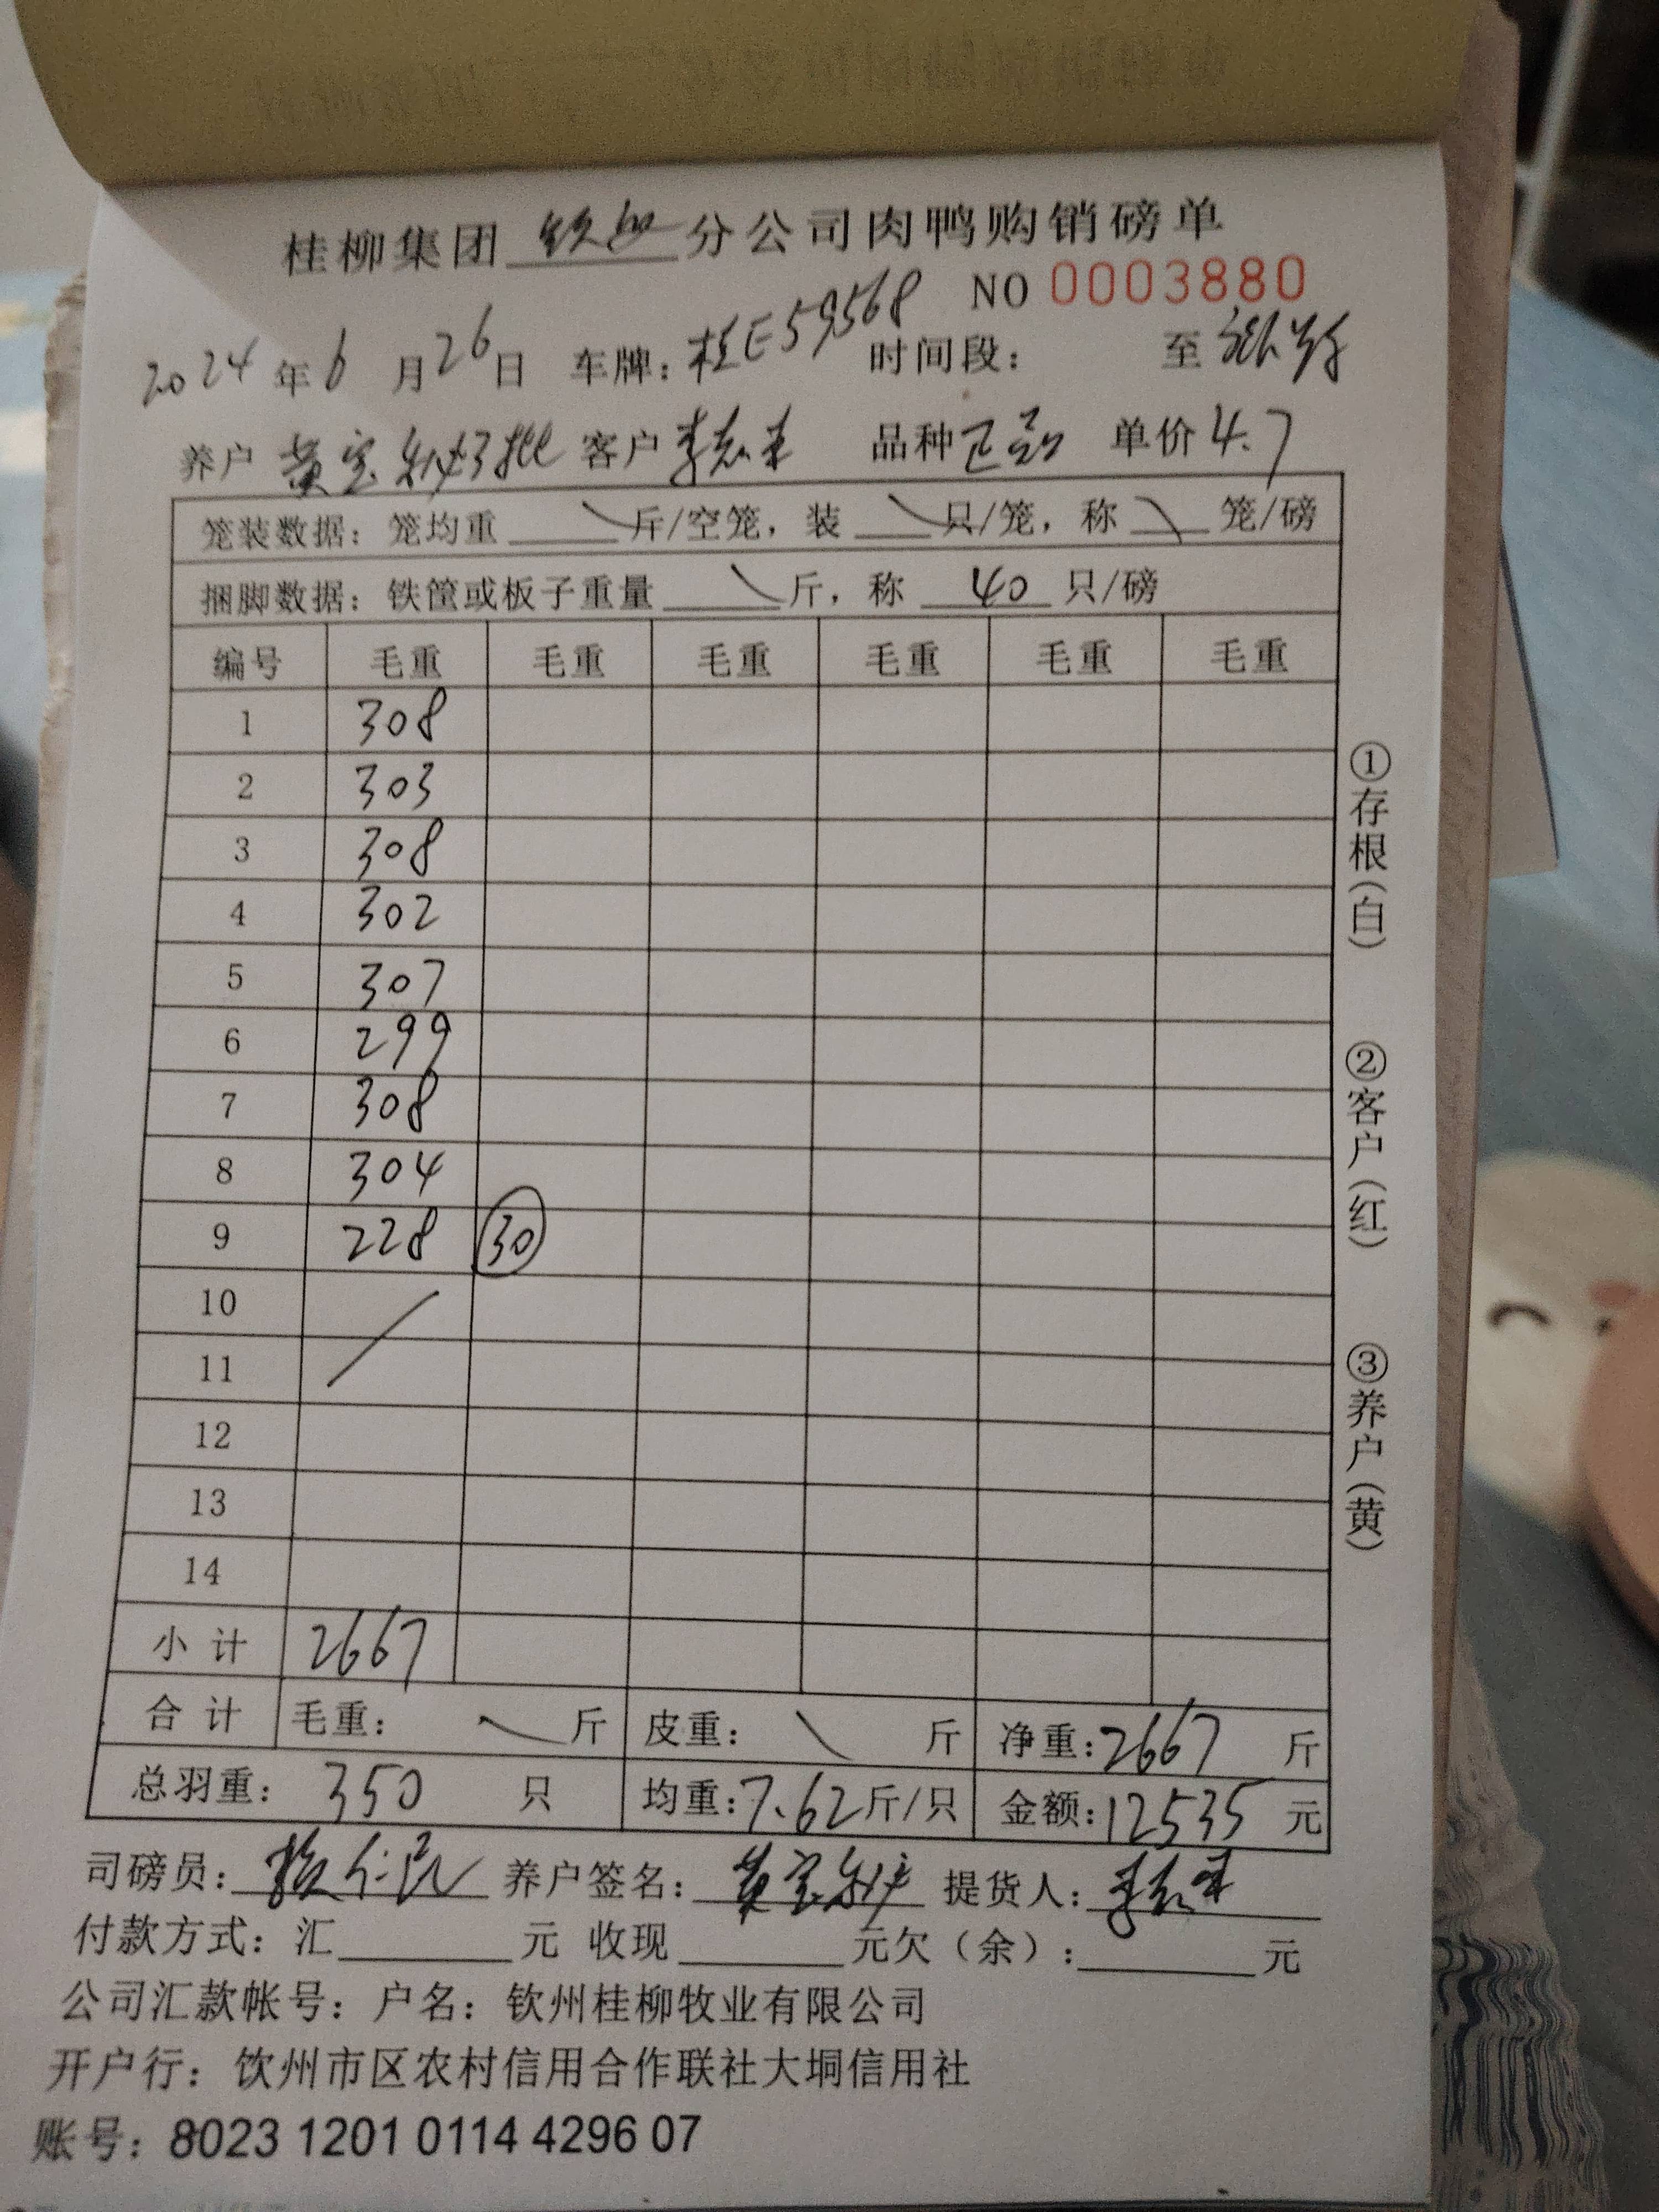 桂柳集团 钦州 分公司肉鸭购销磅单
NO 0003880
2024年6月26日 车牌：桂E59568 时间段： 至
养户 黄宝 客户 李志 品种 正品 单价 4.7
笼装数据：笼均重 斤/空笼，装 只/笼，称 笼/磅
捆脚数据：铁筐或板子重量 斤，称 40 只/磅
编号 毛重 毛重 毛重 毛重 毛重 毛重
1 308
2 303
3 308
4 302
5 307
6 299
7 308
8 304
9 228 30
10
11
12
13
14
小计 2667
合计 毛重： 斤 皮重： 斤 净重：2667 斤
总羽重：350 只 均重：7.62斤/只 金额：12535 元
司磅员： 养户签名：黄宝 提货人：李志
付款方式：汇 元 收现 元欠（余）： 元
公司汇款帐号：户名：钦州桂柳牧业有限公司
开户行：饮州市区农村信用合作联社大垌信用社
账号：8023 1201 0114 4296 07
①存根（白）
②客户（红）
③养户（黄）